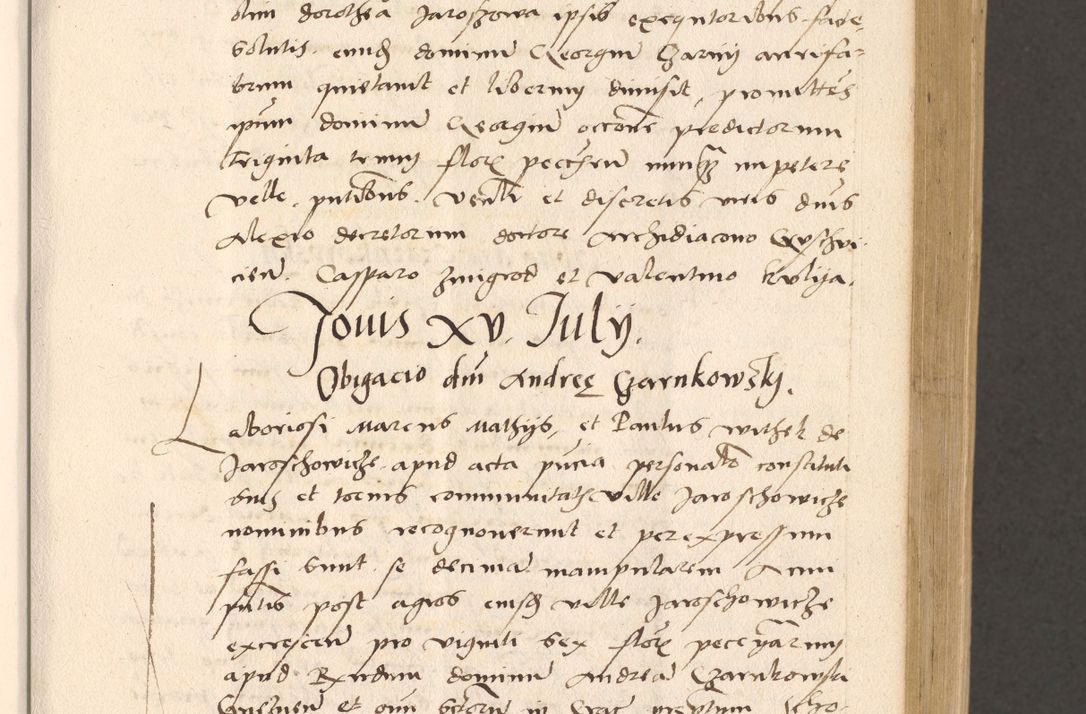 olim dorothea Jaroszowa ipsis exequtoribus fade,
Solutis. eundē dominū Georgiū Czarnij
quietauit et liberum dimisit, promittēs
ipsum dominū Georgiū occōne predictorum
Triginta trium florꝫ pecc̄ēn nunꝙ̄ impetere
velle. pn̄tibus. Venli et discretis viris dn̄is
Alexio decretorum doctore Archidiacono
cien̄. Casparo Zmigrod et valentino kvlija.
Jouis XV. Julij.
Obigacio dn̄i Andreę Czarnkowskj.
Laboriosi Marcus Mathijs, et Paulus withek de
Jaroschowicze. apud acta pn̄cia personalr̄ constituti
suis et tocius communitatis ville Jaroschowicze
nominibus recognouerunt et per expressum
fassi sunt. se decimā manipularem Anni
pn̄tis post agros eiusdē ville Jaroschowicze
excrescen̄ pro viginti sex florꝫ pecc
apud Rn̄dum dominū Andreā Czarnkowski
et in Crac̄